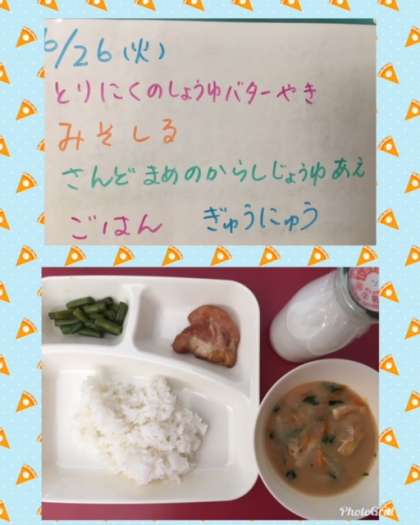 6/26(火)
とりにくのしょうゆバターやき
みそしる
さんどまめのからしじょうゆあえ
ごはん ぎゅうにゅう
PhotoGrid